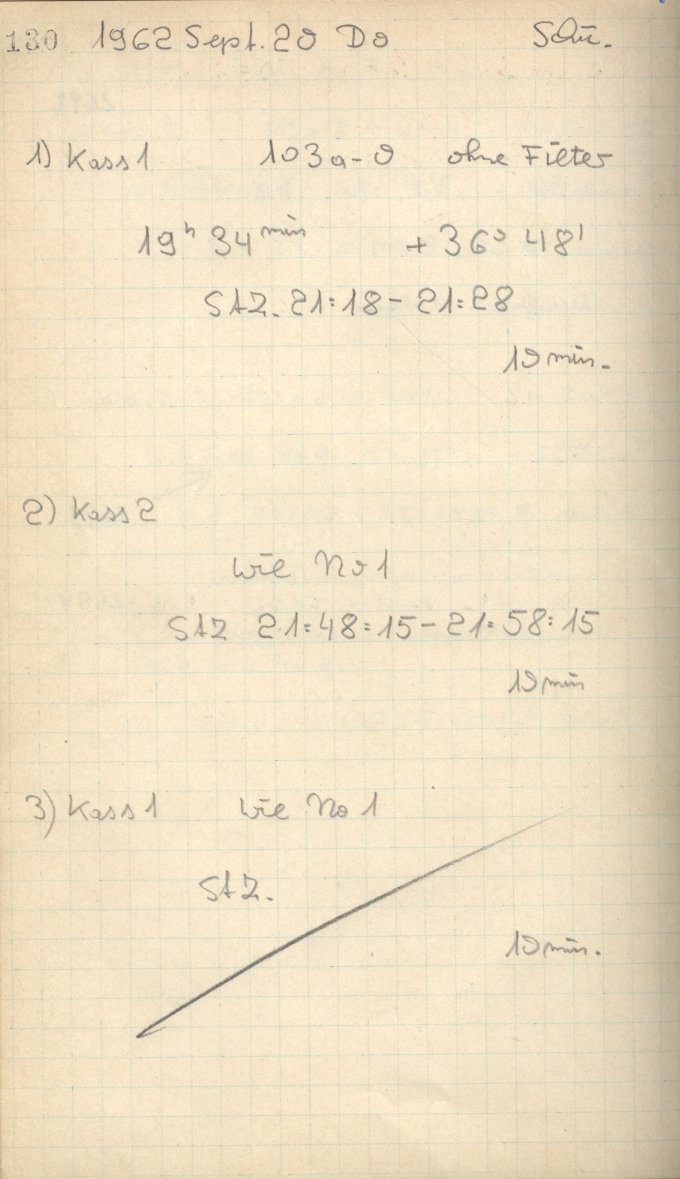 130 1962 Sept. 20 Do Schü.
1) Kass 1 103a-O ohne Filter
19h 34min + 36° 48'
StZ. 21:18 - 21:28
10 min.
2) Kass 2
wie No 1
StZ 21:48:15 - 21:58:15
10 min
3) Kass 1 wie No 1
StZ.
10 min.